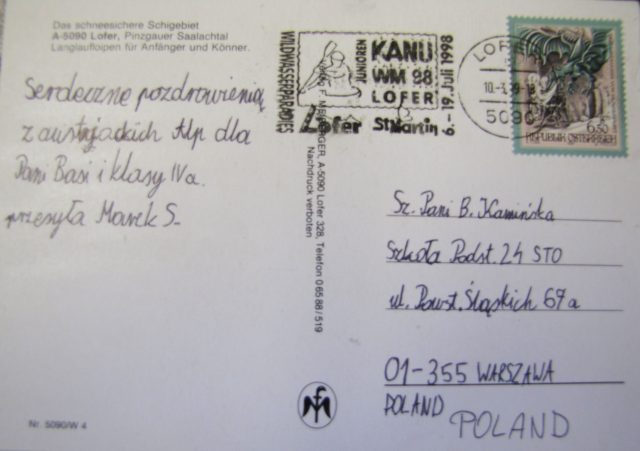 Das schneesichere Schigebiet
A-5090 Lofer, Pinzgauer Saalachtal
Langlaufloipen für Anfänger und Könner.
Serdeczne pozdrowienia
z austrjackich Alp dla
Pani Basi i klasy IVa.
przesyła Marek S.
Nr. 5090/W 4
WILDWASSERPARADIES
JUNIOREN
KANU
WM 98
LOFER
Lofer St Martin
9.-19. Juli 1998
A-5090 Lofer 328, Telefon 0 65 88 / 519
Nachdruck verboten
5090
6.50
REPUBLIK ÖSTERREICH
Sz. Pani B. Kamińska
Szkoła Podst. 24 STO
ul. Powst. Śląskich 67a
01-355 WARSZAWA
POLAND
POLAND